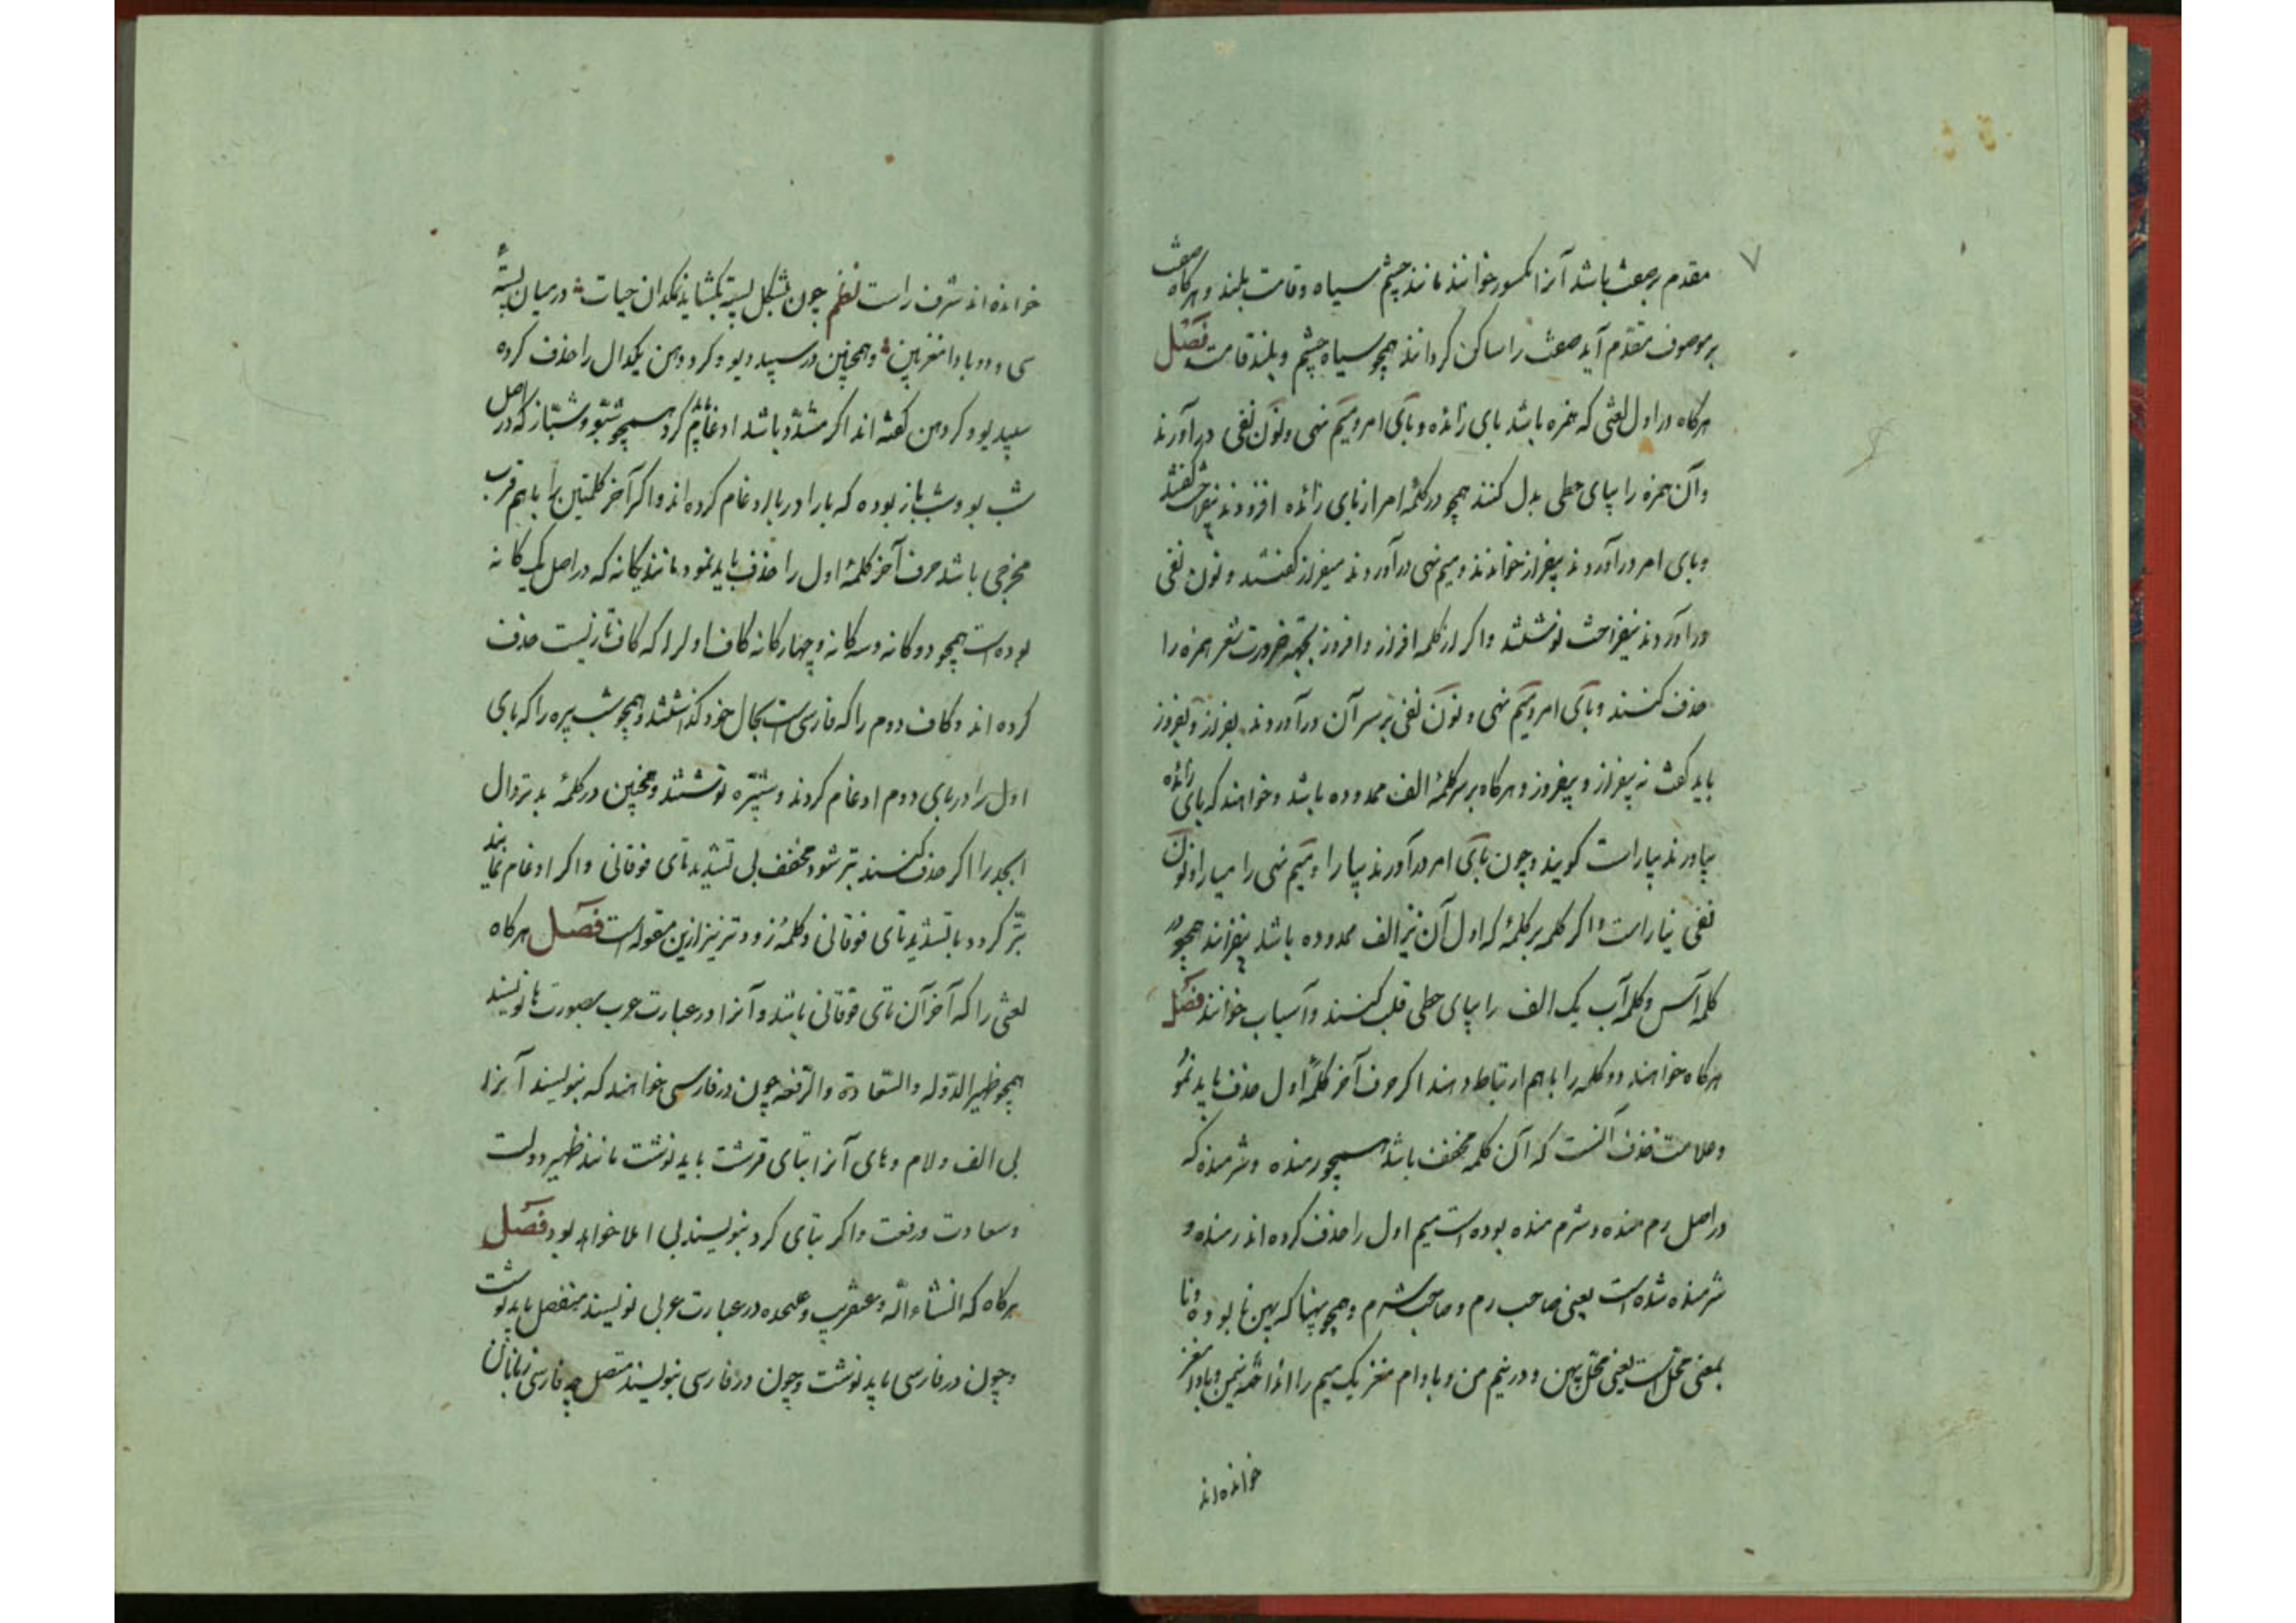 ۷
مقدم بر صفت باشد آنرا مکسور خوانند مانند چشم سیاه و قامت بلند و هرگاه صفت
بر موصوف مقدم آید صفت را ساکن گردانند همچو سیاه چشم و بلند قامت فصل
هرگاه در اول لغتی که همزه باشد بای زائده و بای امر و میم نهی و نون نفی درآورند
و آن همزه را بیای حطی بدل کنند همچو در کلمهٔ امر از بای زائده افزودند بیفراخت گفتند
و بای امر درآوردند بیفراز خواندند و میم نهی درآوردند میفراز گفتند و نون نفی
درآوردند نیفراخت نوشتند و اگر از کلمه افراز و افروز بجهة ضرورت شعر همزه را
حذف کنند و بای امر و میم نهی و نون نفی بر سر آن درآوردند بفراز و بفروز
باید گفت نه بیفراز و بیفروز و هرگاه بر سر کلمهٔ الف ممدوده باشد و خواهند که بای زائده
بیاورند بیاراست گویند و چون بای امر درآورند بیارا و میم نهی را میارا و نون
نفی نیاراست و اگر کلمه بر کلمهٔ که اول آن نیز الف ممدوده باشد بیفزایند همچو
کلمه آس و کلمه آب یک الف را بیای حطی قلب کنند و آسیاب خوانند فصل
هرگاه خواهند دو کلمه را با هم ارتباط دهند اگر حرف آخر کلمهٔ اول حذف باید نمود
و علامت حذف آنست که آن کلمه مخفف باشد همچو رمنده و شرمنده که
در اصل رم منده و شرم منده بوده است میم اول را حذف کرده اند رمنده و
شرمنده شده است یعنی صاحب رم و صاحب شرم و همچو پهنا که پهن نا بوده و نا
بمعنی محل است یعنی محل پهن و در نیم من و بادام مغز یک میم را انداخته نیمن و بادامغز
خوانده اند
خوانده اند شرف راست نظم چون بشکل پسته بگشاید نمکدان حیات در میان پستهٔ
سی و دو بادامغز بین و همچنین در سپید دیو و گرد دهن یکدال را حذف کرده
سپیدیو و گردهن گفته اند اگر مشدد باشد ادغام گردد همچو شبّو و شبّاز که در اصل
شب بو و شب باز بوده که با را در با ادغام کرده اند و اگر آخر کلمتین را با هم قرب
مخرجی باشد حرف آخر کلمهٔ اول را حذف باید نمود مانند یگانه که در اصل یک گانه
بوده است همچو دوگانه و سه گانه و چهارگانه کاف اول را که کاف تازیست حذف
کرده اند و کاف دوم را که فارسی است بحال خود گذاشتند و همچو شب پره را که بای
اول را در بای دوم ادغام کردند و شپّره نوشتند و همچنین در کلمهٔ بدتر دال
ابجد را اگر حذف کنند بتر شود مخفف بی تشدید تای فوقانی و اگر ادغام نمایند
بتّر گردد با تشدید تای فوقانی و کلمهٔ زودتر نیز ازین مقوله است فصل هرگاه
لغتی را که آخر آن تای فوقانی باشد و آنرا در عبارت عرب بصورت ها نویسند
همچو ظهیر الدوله والسعادة والرفعة چون در فارسی خواهند که بنویسند آنرا
بی الف و لام و های آنرا بتای قرشت باید نوشت مانند ظهیر دولت
و سعادت و رفعت و اگر بتای گرد بنویسند بی املا خواهد بود فصل
هرگاه که انشاءالله و عنقریب و عنده در عبارت عربی نویسند منفصل باید نوشت
و چون در فارسی باید نوشت و چون در فارسی بنویسند متصل چه فارسی زبانان